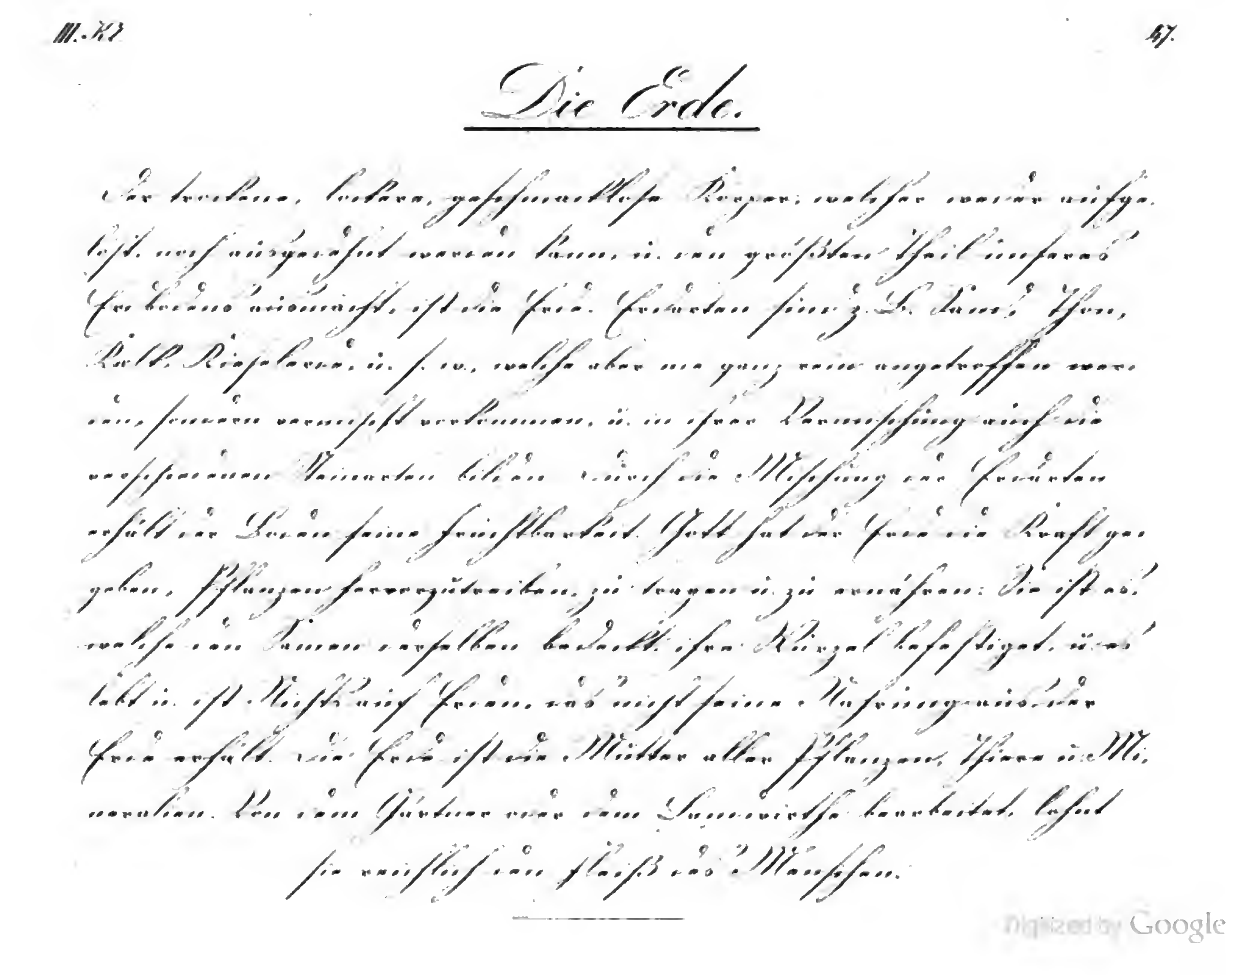 III. Kl. 47.
Die Erde.
Der trockene, lockere, geschmacklose Körper, welcher weder aufge-
löst, noch ausgedehnt werden kann, u. den größten Theil unseres
Erdbodens ausmacht, ist die Erde. Erdarten sind z. B. Sand, Thon,
Kalk, Kieselerde, u. s. w., welche aber nie ganz rein angetroffen wer-
den, sondern vermischt vorkommen, u. in ihrer Vermischung auch die
verschiedenen Steinarten bilden. Durch die Mischung der Erdarten
erhält der Boden seine Fruchtbarkeit. Gott hat der Erde die Kraft ge-
geben, Pflanzen hervorzutreiben, zu tragen u. zu ernähren. Sie ist es,
welche den Samen derselben bedeckt, ihre Wurzel befestiget, u. es
lebt u. ist Nichts auf Erden, das nicht seine Nahrung aus der
Erde erhält. Die Erde ist die Mutter aller Pflanzen, Thiere u. Mi-
neralien. Von dem Gärtner oder dem Landwirthe bearbeitet, lohnt
sie reichlich den Fleiß des Menschen.
Digitized by Google